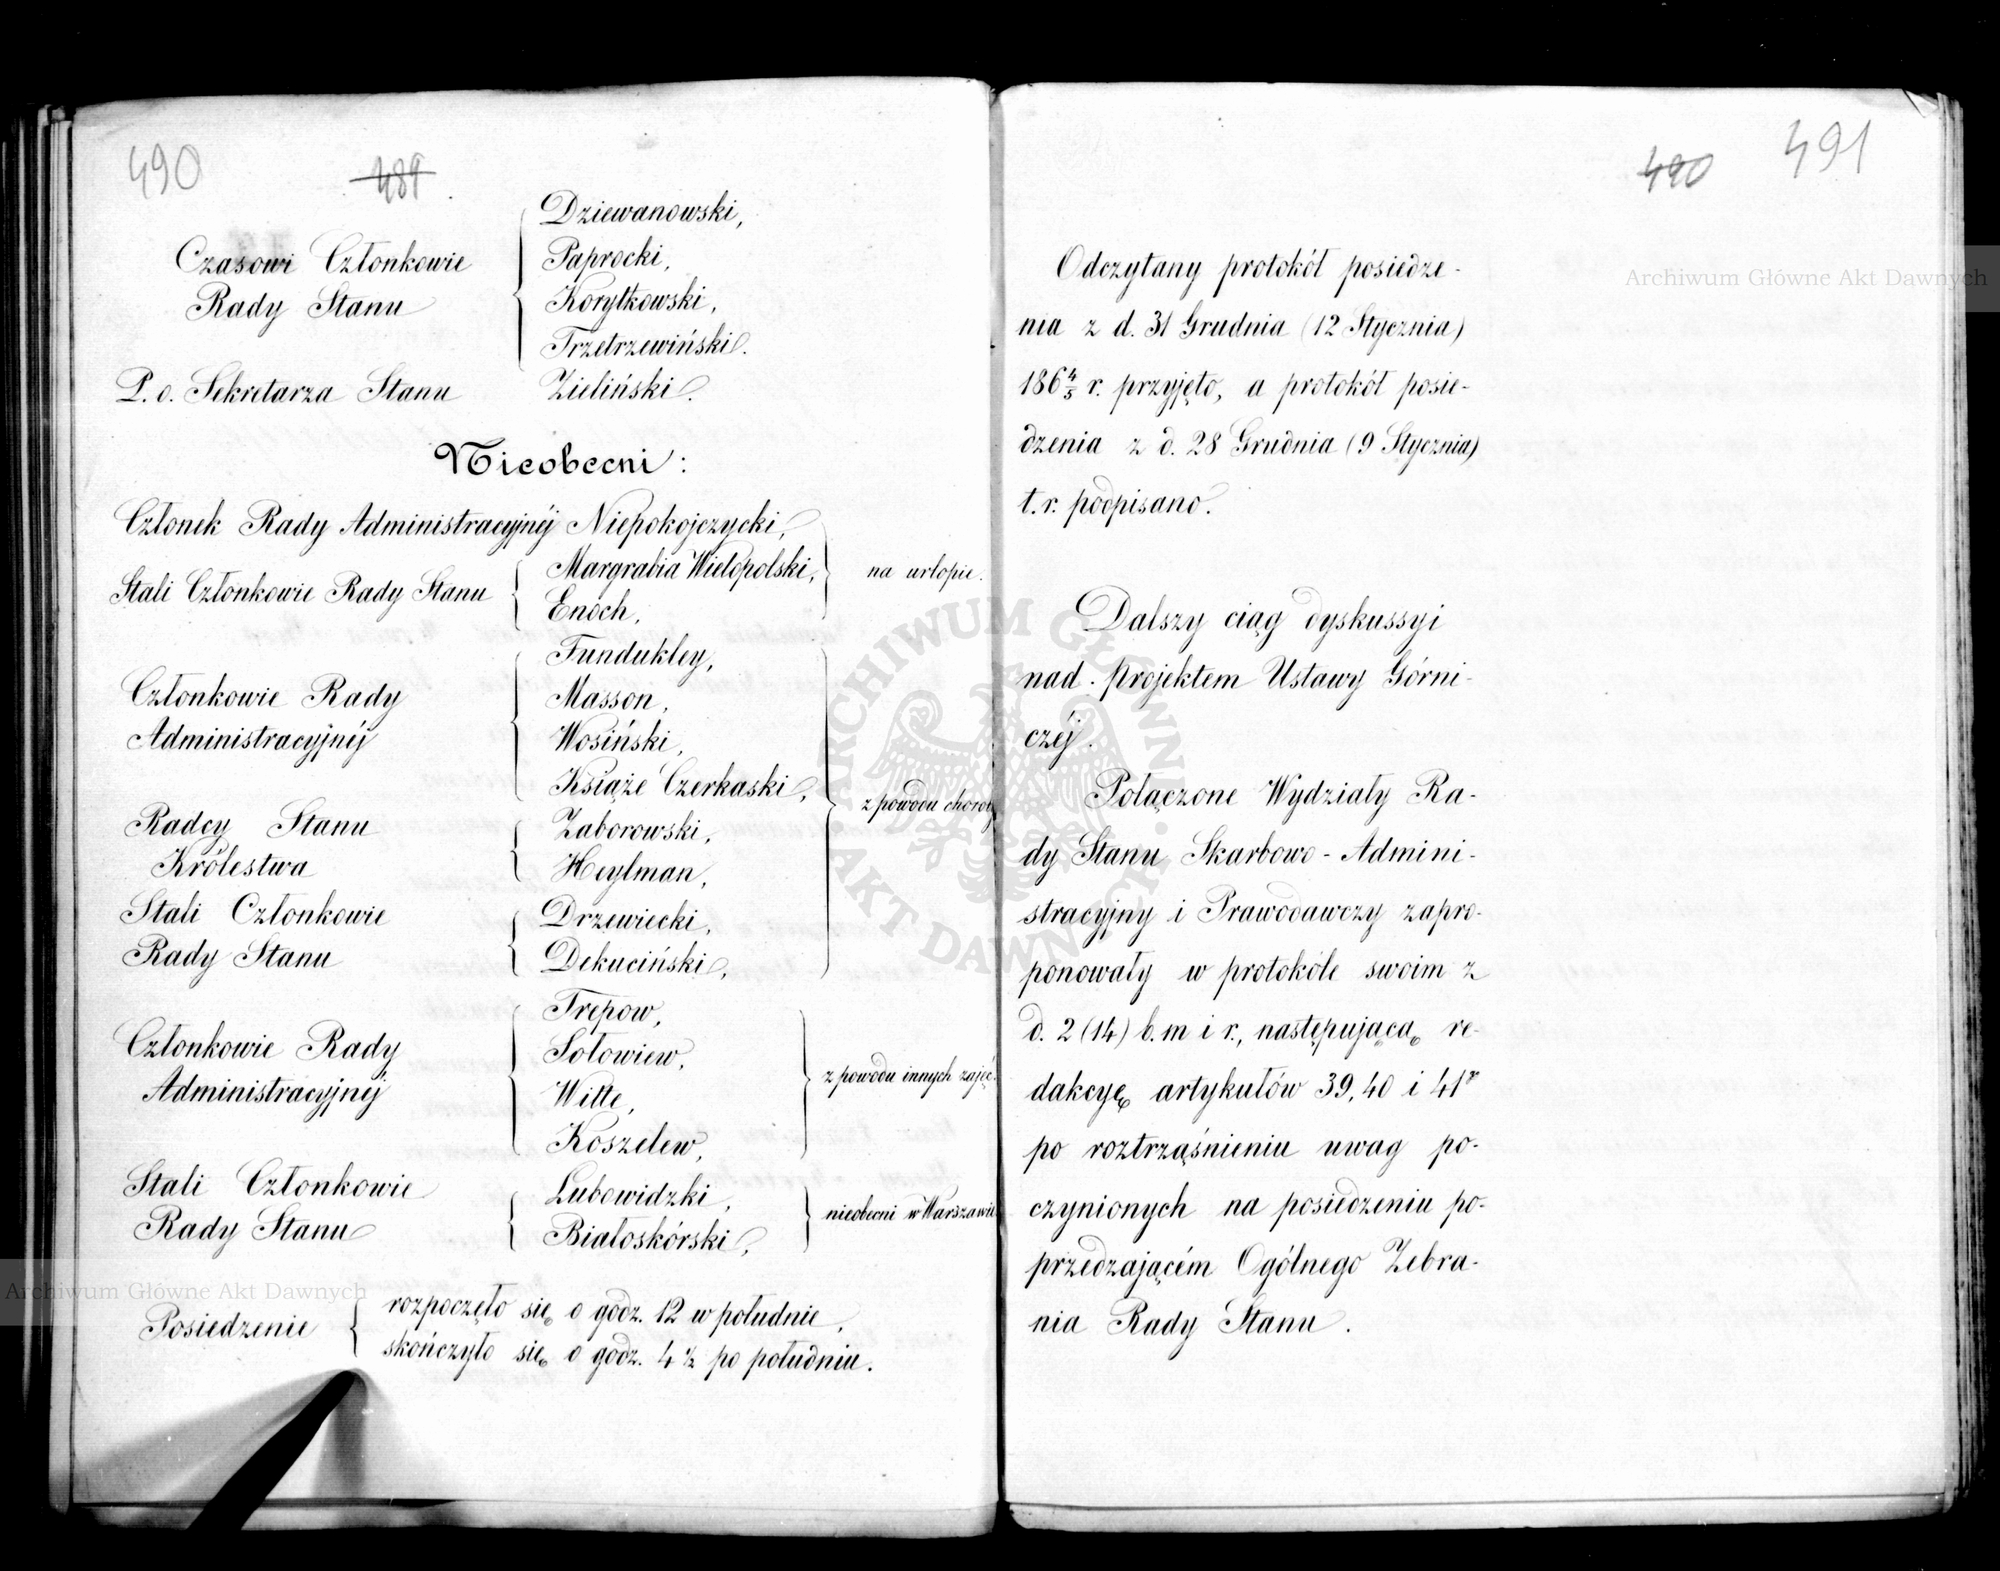 490
489
Czasowi Członkowie
Rady Stanu
Dziewanowski,
Paprocki,
Korytkowski,
Trzetrzewiński.
P. o. Sekretarza Stanu Zieliński.
Nieobecni:
Członek Rady Administracyjnéj Niepokojczycki,
Stali Członkowie Rady Stanu
Margrabia Wielopolski,
Enoch,
na urlopie.
Członkowie Rady
Administracyjnéj
Fundukley,
Masson,
Wosiński,
Książe Czerkaski,
Radcy Stanu
Królestwa
Zaborowski,
Heylman,
Stali Członkowie
Rady Stanu
Drzewiecki,
Dekuciński,
z powodu choroby
Członkowie Rady
Administracyjnéj
Trepow,
Sołowiew,
Witte,
Koszelew,
z powodu innych zajęć.
Stali Członkowie
Rady Stanu
Lubowidzki,
Białoskórski,
nieobecni w Warszawie
Posiedzenie
rozpoczęło się o godz. 12 w południe,
skończyło się o godz. 4 ½ po południu.
490
491
Odczytany protokół posiedze-
nia z d. 31 Grudnia (12 Stycznia)
186 4/5 r. przyjęto, a protokół posie-
dzenia z d. 28 Grudnia (9 Stycznia)
t. r. podpisano.
Dalszy ciąg dyskussyi
nad projektem Ustawy Górni-
czéj.
Połączone Wydziały Ra-
dy Stanu Skarbowo-Admini-
stracyjny i Prawodawczy zapro-
ponowały w protokóle swoim z
d. 2 (14) b. m i r., następującą re-
dakcyę artykułów 39, 40 i 41
po roztrząśnieniu uwag po-
czynionych na posiedzeniu po-
przedzającém Ogólnego Zebra-
nia Rady Stanu.
Archiwum Główne Akt Dawnych
Archiwum Główne Akt Dawnych
ARCHIWUM GŁÓWNE AKT DAWNYCH